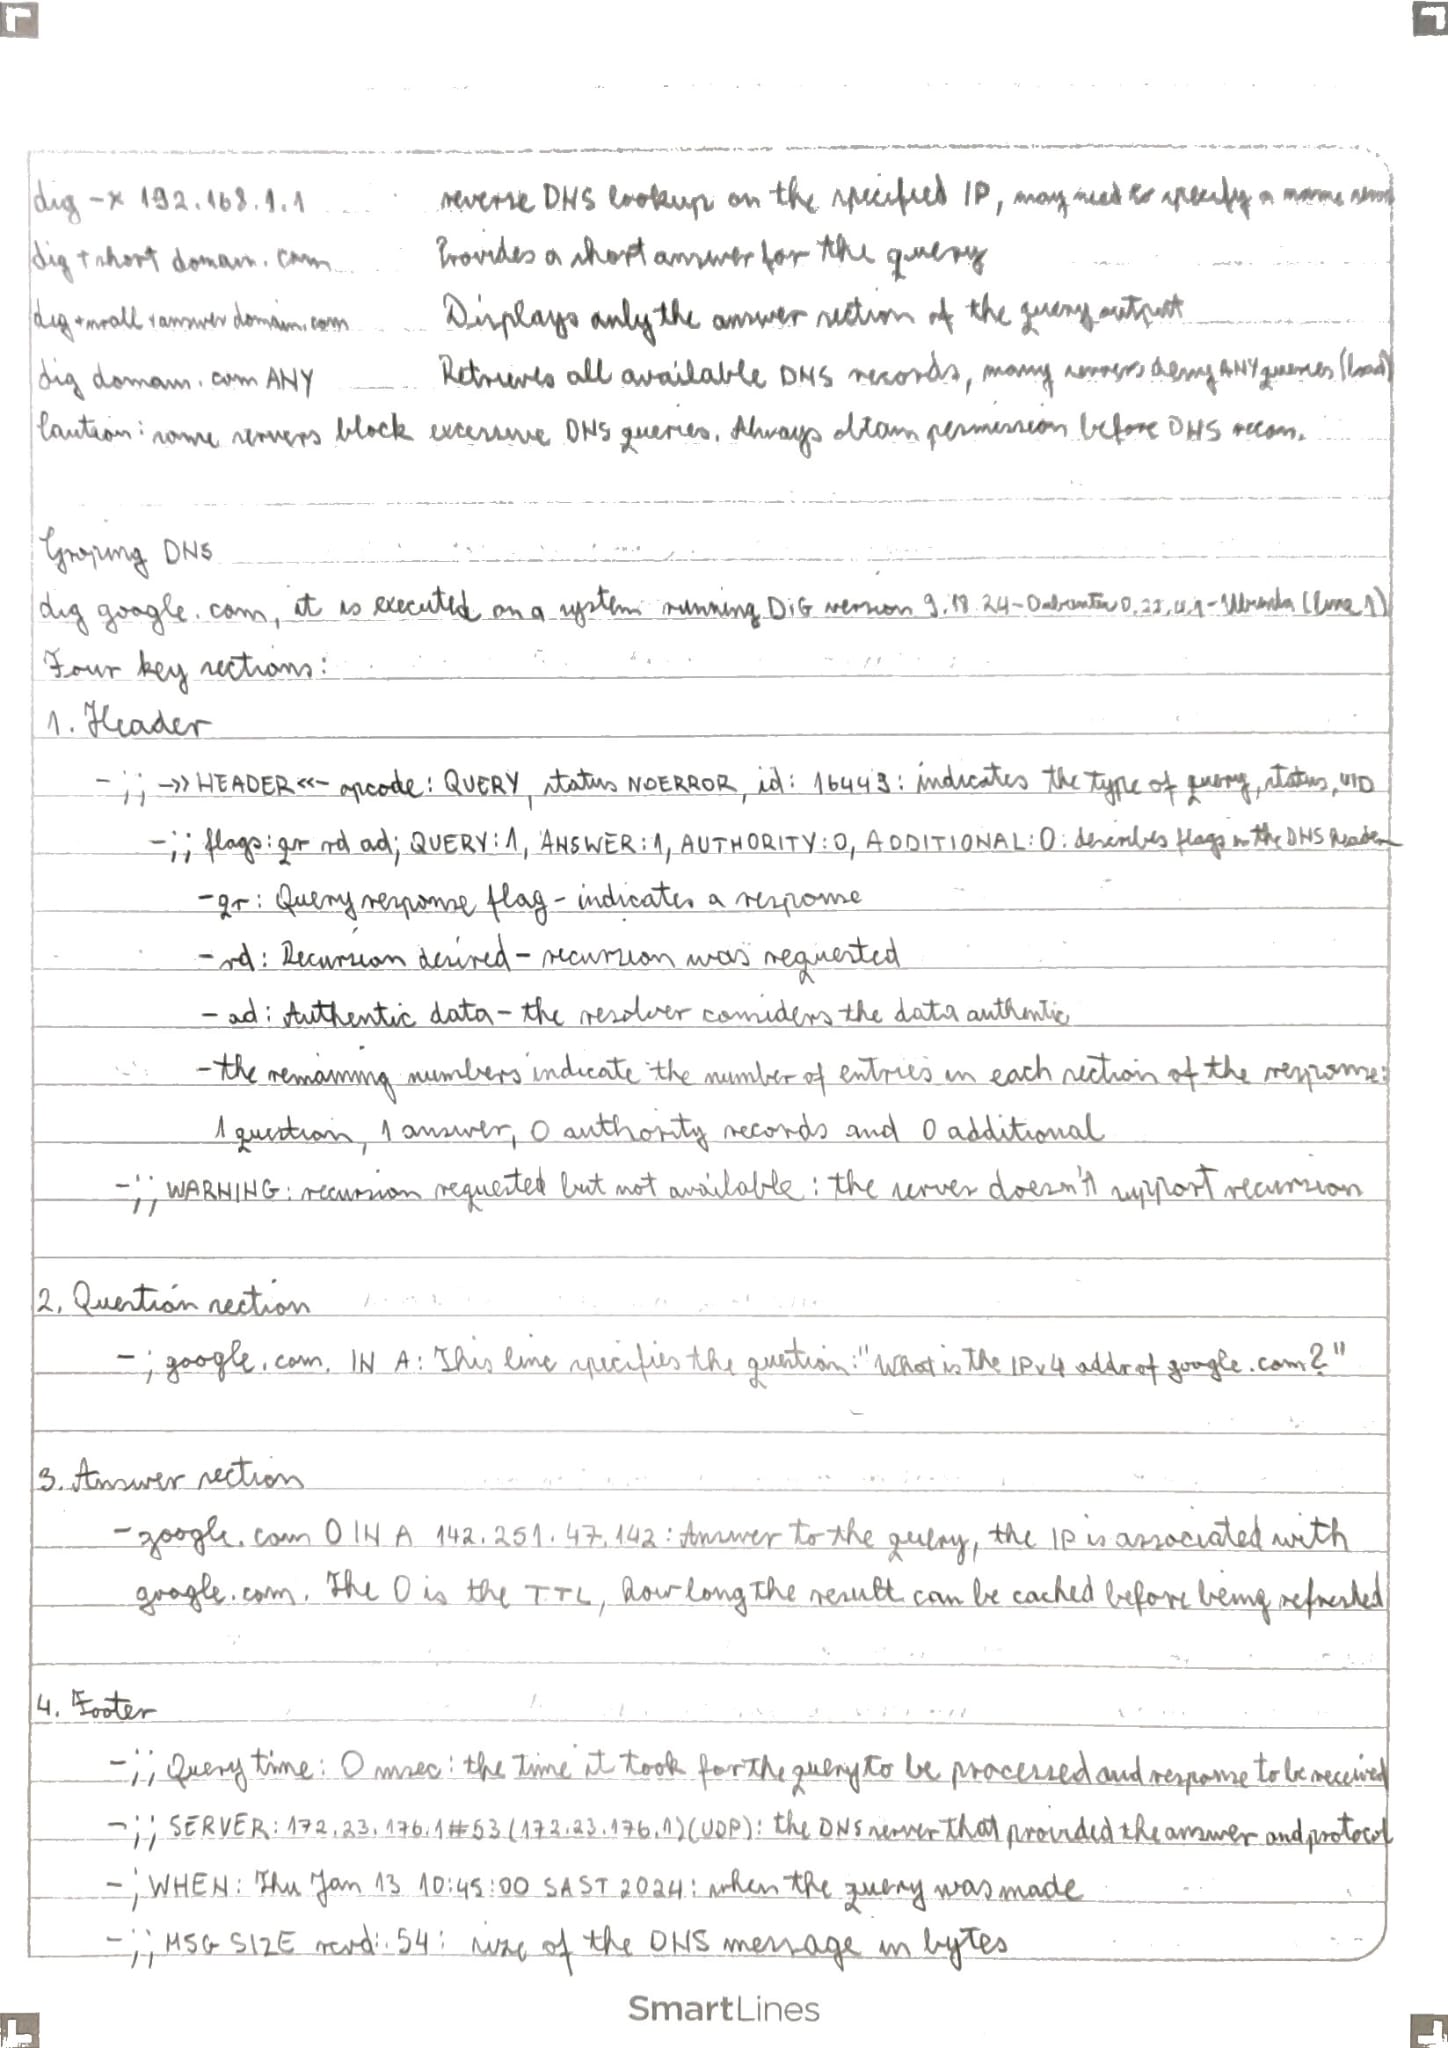 dig -x 192.168.1.1 reverse DNS lookup on the specified IP, may need to specify a name
dig +short domain.com Provides a short answer for the query
dig +noall +answer domain.com Displays only the answer section of the query output
dig domain.com ANY Retrieves all available DNS records, many servers deny ANY queries (load)
Caution: some servers block excessive DNS queries. Always obtain permission before DNS recon.
Groping DNS
dig google.com, it is executed on a system running DiG version 9.18.24-0ubuntu0.22.04.1-Ubuntu (line 1)
Four key sections:
1. Header
- ;; ->>HEADER<<- opcode: QUERY, status NOERROR, id: 16449: indicates the type of query, status, UID
- ;; flags: qr rd ad; QUERY:1, ANSWER:1, AUTHORITY:0, ADDITIONAL:0: describes flags in the DNS header
- qr: Query response flag - indicates a response
- rd: Recursion desired - recursion was requested
- ad: Authentic data - the resolver considers the data authentic
- the remaining numbers indicate the number of entries in each section of the response:
1 question, 1 answer, 0 authority records and 0 additional
- ;; WARNING: recursion requested but not available: the server doesn't support recursion
2. Question section
- ; google.com. IN A: This line specifies the question: "What is the IPv4 addr of google.com?"
3. Answer section
- google.com 0 IN A 142.251.47.142: Answer to the query, the IP is associated with
google.com. The 0 is the TTL, how long the result can be cached before being refreshed
4. Footer
- ;; Query time: 0 msec: the time it took for the query to be processed and response to be received
- ;; SERVER: 172.23.176.1#53(172.23.176.1)(UDP): the DNS server that provided the answer and protocol
- ; WHEN: Thu Jan 13 10:45:00 SAST 2024: when the query was made
- ;; MSG SIZE rcvd: 54: size of the DNS message in bytes
SmartLines